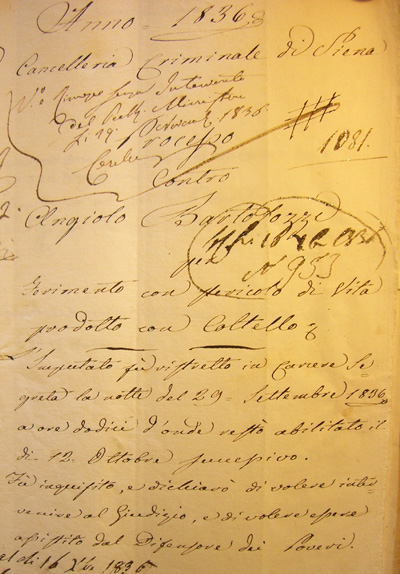 Anno = 1836.
Cancelleria Criminale di Siena
N.o
del Pubb. Ministero
Li 19. 1836
Processo
1081.
Contro
Angiolo Bartolozzi
per
N. 933
Ferimento con pericolo di Vita
prodotto con Coltello
L'Imputato fù ristretto in Carcere Se=
greta la notte del 29= Settembre 1836
a ore dodici d'onde restò abilitato il
di= 12. Ottobre successivo.
Fù inquisito, e dichiarò di volere inter=
venire al Giudizio, e di volere essere
assistito dal Difensore dei Poveri.
al di 16 Xbre 1836